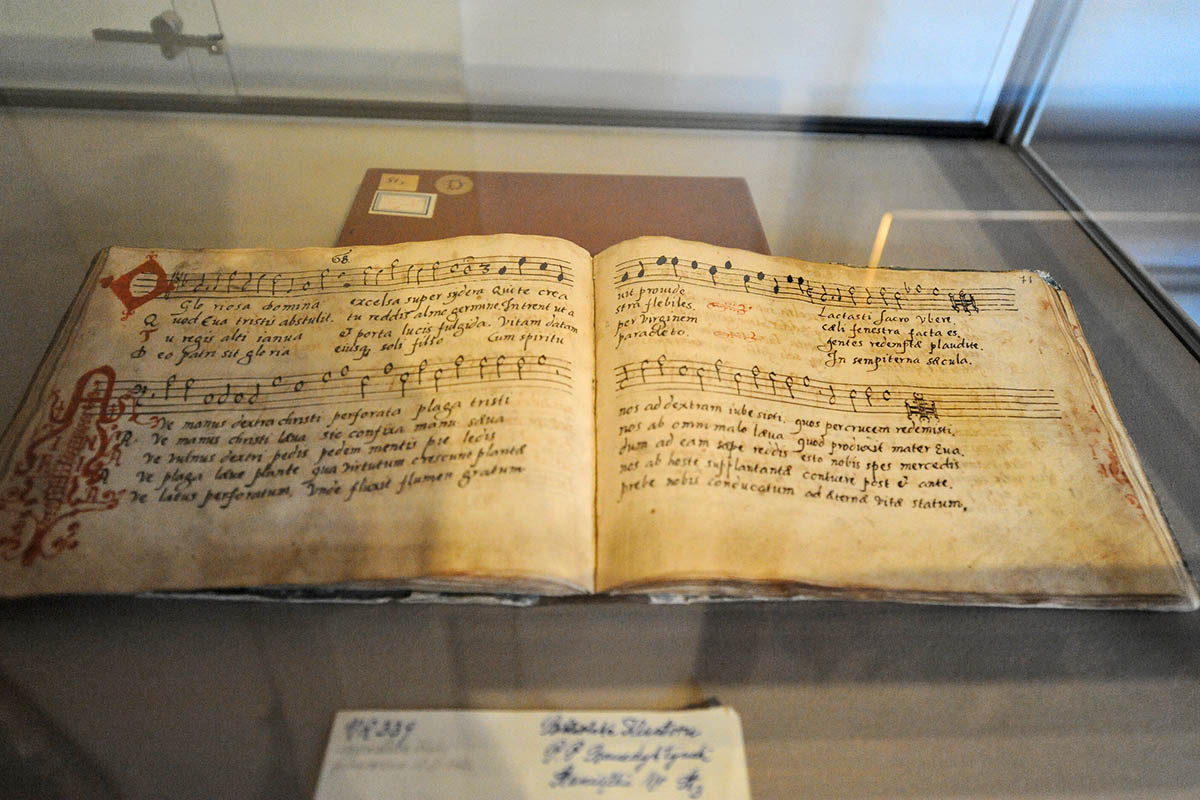 St,
D
68
Glo riosa domina excelsa super sydera Qui te crea
Q uod Eua tristis abstulit. tu reddis almo germine. Intrent ut a
T u regis alti ianua et porta lucis fulgida. Vitam datam
D eo patri sit gloria eiusq, soli filio Cum spiritu
Ve manus dextra christi perforata plaga tristi
A Ve manus christi læua sic confixa manu sæua
Ve vulnus dextri pedis pedem mentis pie ledis
A Ve plaga læue plante qua virtutum crescunt plantæ
Ve latus perforatum, Vnde fluxit flumen gratum
uit prouide
stra flebiles
per Virginem
paracleto.
Lactasti sacro vbere.
cæli fenestra facta es,
gentes redemptæ plaudite.
In sempiterna sæcula.
nos ad dextram iube sisti, quos per crucem redemisti.
nos ab omni malo læua quod produxit mater Eua.
dum ad eam sæpe reddis esto nobis spes mercedis
nos ab hoste supplantantæ contuere post et ante.
prebe nobis conducatum ad æternæ vitæ statum,
339
Klasztoru
P. P. Benedyktynek